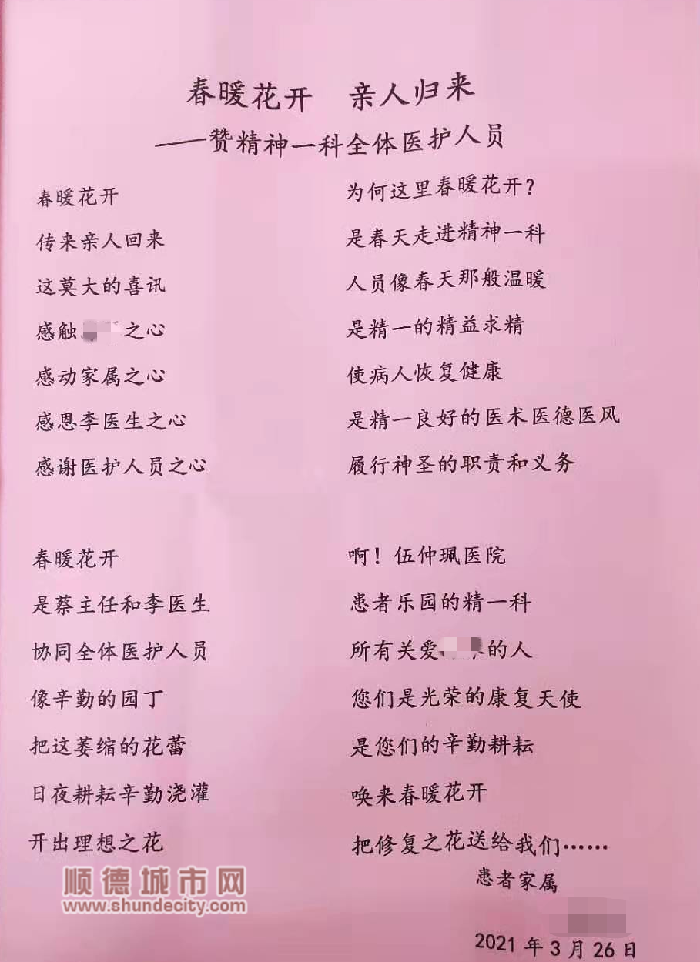 春暖花开 亲人归来
——赞精神一科全体医护人员
春暖花开
传来亲人回来
这莫大的喜讯
感触 之心
感动家属之心
感恩李医生之心
感谢医护人员之心
为何这里春暖花开?
是春天走进精神一科
人员像春天那般温暖
是精一的精益求精
使病人恢复健康
是精一良好的医术医德医风
履行神圣的职责和义务
春暖花开
是蔡主任和李医生
协同全体医护人员
像辛勤的园丁
把这萎缩的花蕾
日夜耕耘辛勤浇灌
开出理想之花
啊!伍仲珮医院
患者乐园的精一科
所有关爱 的人
您们是光荣的康复天使
是您们的辛勤耕耘
唤来春暖花开
把修复之花送给我们……
患者家属
2021年3月26日
顺德城市网
www.shundecity.com